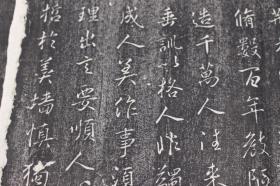 脩數百年敝
造千萬人往來
垂訓以格人非
成人美作事須
理出言要順人
哲於美墻慎獨